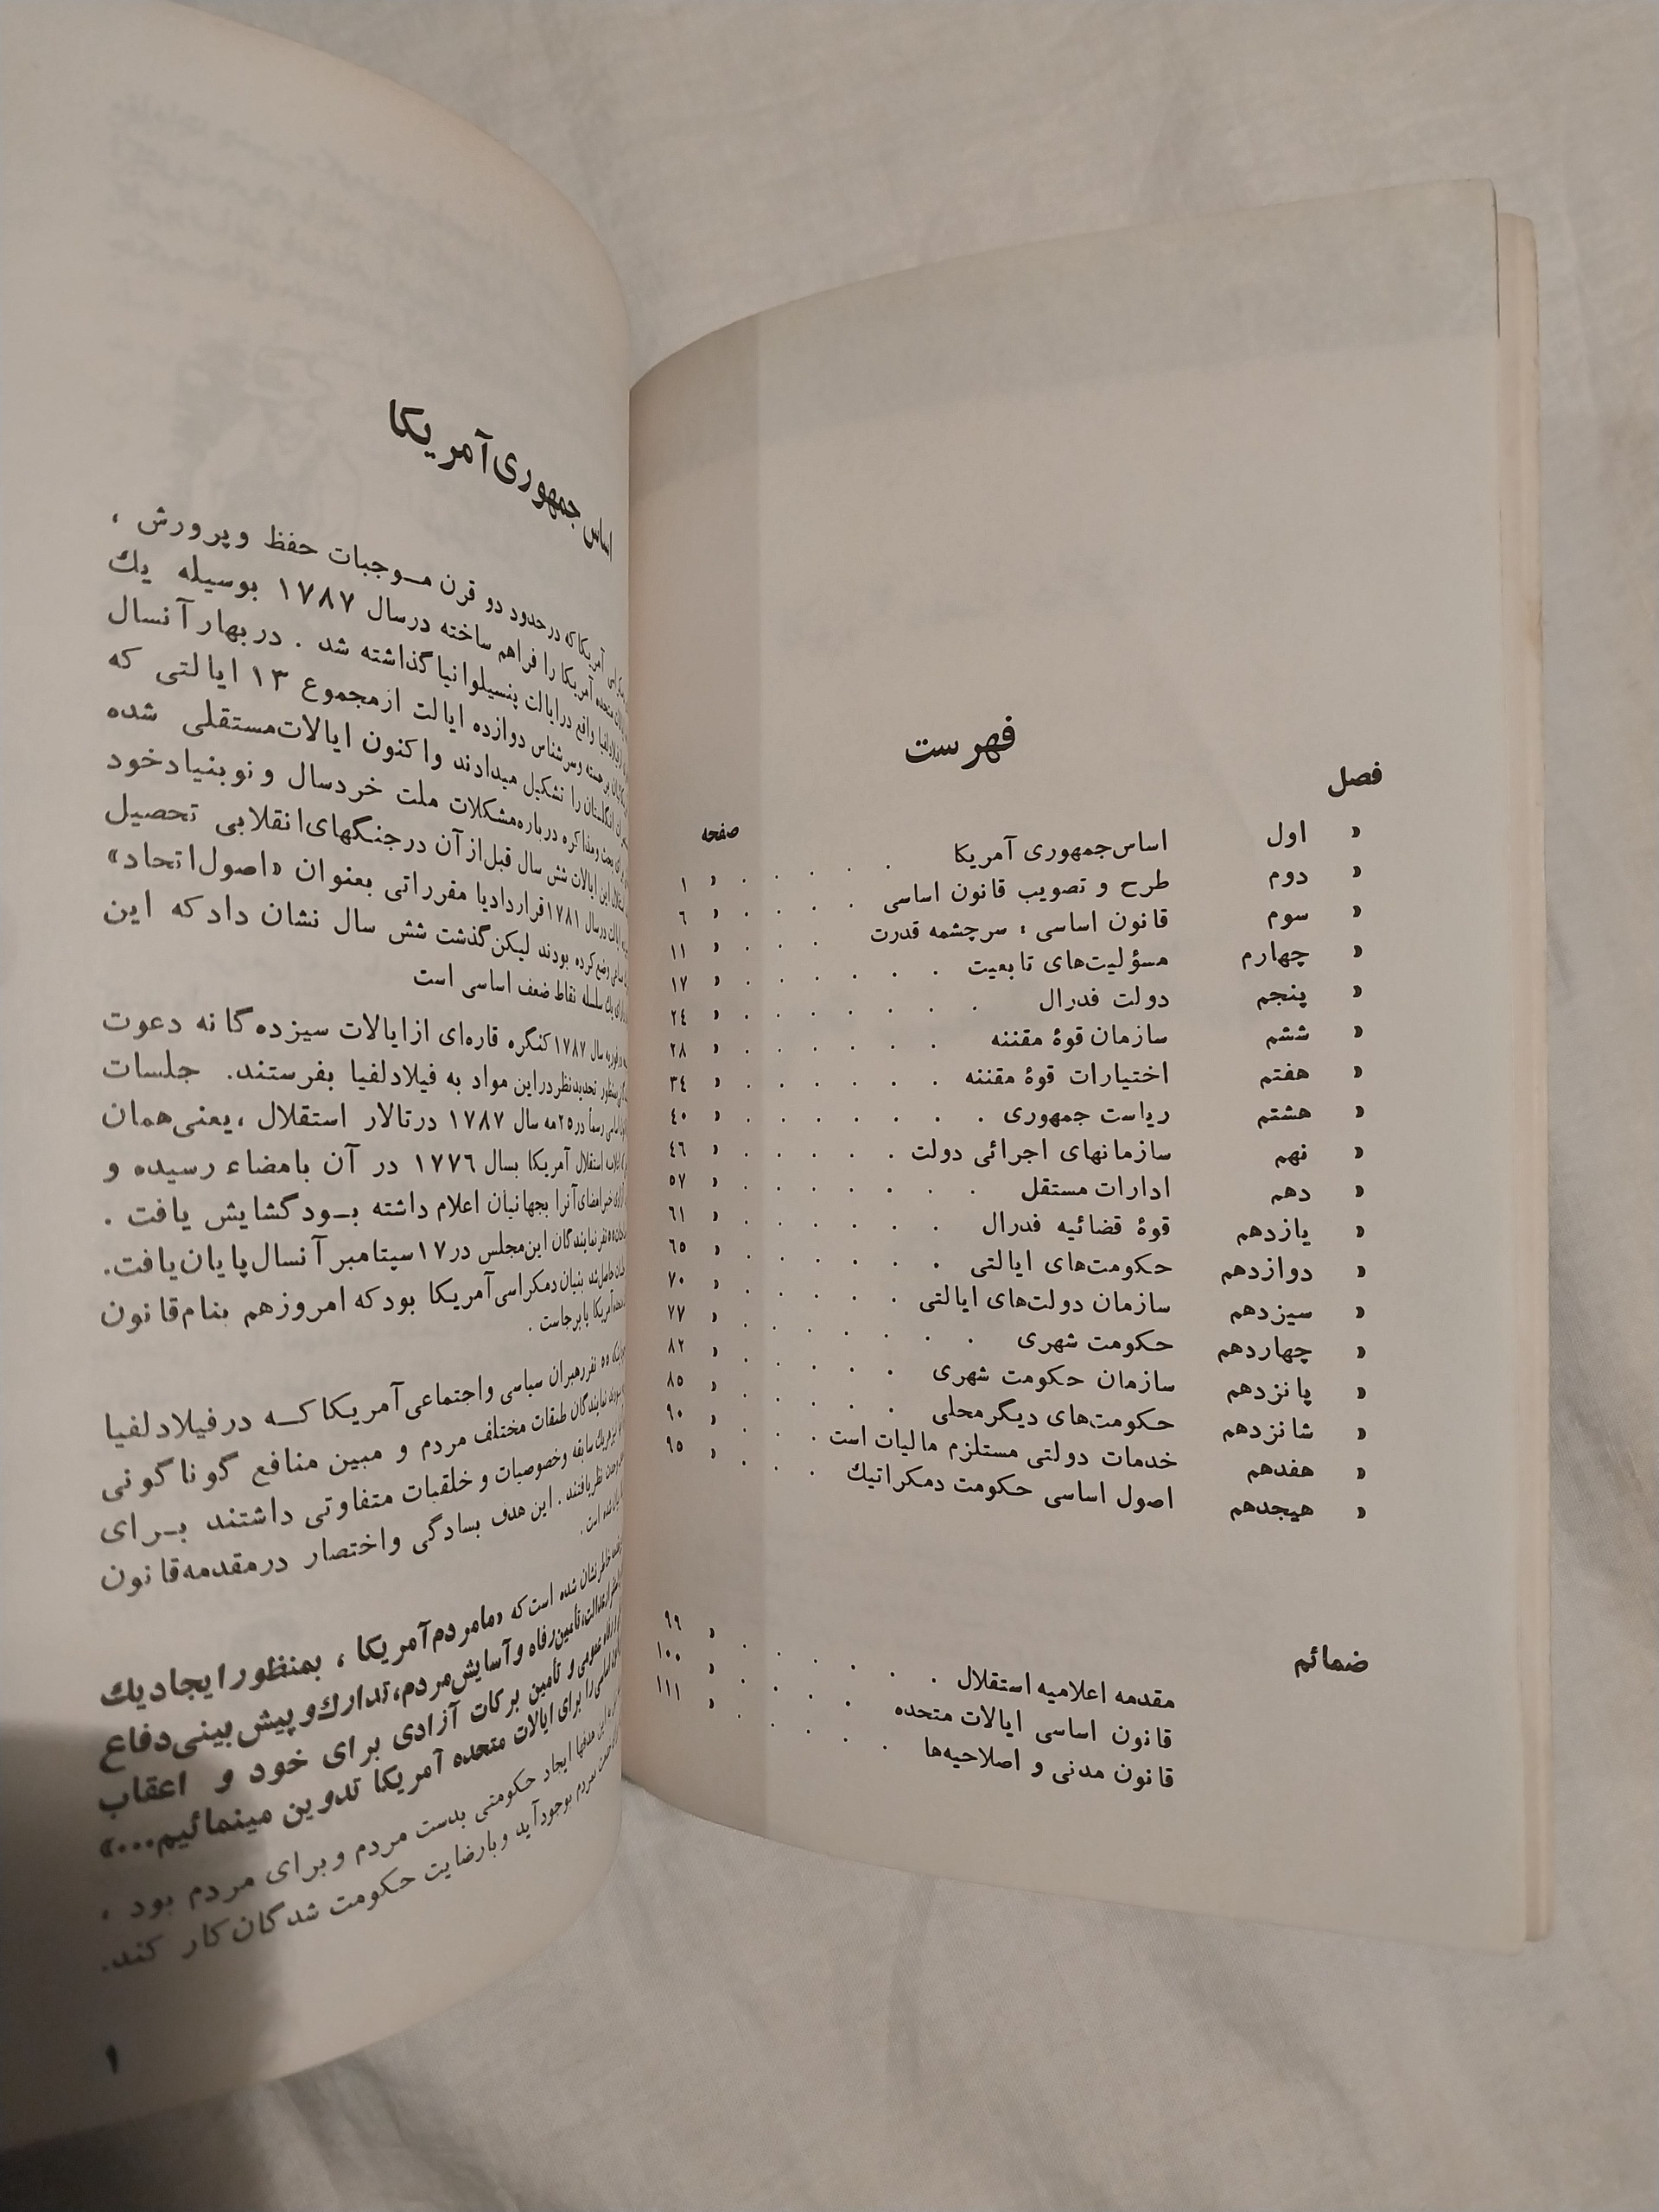 فهرست
فصل
صفحه
« اول اساس جمهوری آمریکا . . . . . « ۱
« دوم طرح و تصویب قانون اساسی . . . . « ٦
« سوم قانون اساسی ؛ سرچشمه قدرت . . . « ۱۱
« چهارم مسؤلیت‌های تابعیت . . . . . . « ۱۷
« پنجم دولت فدرال . . . . . . . « ۲٤
« ششم سازمان قوهٔ مقننه . . . . . . « ۲۸
« هفتم اختیارات قوهٔ مقننه . . . . . . « ۳٤
« هشتم ریاست جمهوری . . . . . . . « ٤۰
« نهم سازمانهای اجرائی دولت . . . . . « ٤٦
« دهم ادارات مستقل . . . . . . . « ٥۷
« یازدهم قوهٔ قضائیه فدرال . . . . . . « ٦۱
« دوازدهم حکومت‌های ایالتی . . . . . . « ٦٥
« سیزدهم سازمان دولت‌های ایالتی . . . . . « ۷۰
« چهاردهم حکومت شهری . . . . . . . « ۷۷
« پانزدهم سازمان حکومت شهری . . . . . « ۸۲
« شانزدهم حکومت‌های دیگر محلی . . . . . « ۸٥
« هفدهم خدمات دولتی مستلزم مالیات است . . . « ۹۰
« هیجدهم اصول اساسی حکومت دمکراتیك . . . « ۹٥
ضمائم
مقدمه اعلامیه استقلال . . . . . « ۹۹
قانون اساسی ایالات متحده . . . . « ۱۰۰
قانون مدنی و اصلاحیه‌ها . . . . « ۱۱۱
اساس جمهوری آمریکا
آمریکا که در حدود دو قرن موجبات حفظ و پرورش ،
متحده آمریکا را فراهم ساخته درسال ۱۷۸۷ بوسیله یك
واقع در ایالت پنسیلوانیا گذاشته شد . در بهار آنسال
برجسته وسرشناس دوازده ایالت ازمجموع ۱۳ ایالتی که
انگلستان را تشکیل میدادند واکنون ایالات مستقلی شده
بحث ومذاکره درباره مشکلات ملت خردسال و نوبنیاد خود
این ایالات شش سال قبل از آن درجنگهای انقلابی تحصیل
درسال ۱۷۸۱ قرارداد یا مقرراتی بعنوان «اصول اتحاد»
وضع کرده بودند لیکن گذشت شش سال نشان داد که این
یك سلسله نقاط ضعف اساسی است
سال ۱۷۸۷ کنگره قاره‌ای از ایالات سیزده گانه دعوت
بمنظور تجدیدنظر دراین مواد به فیلادلفیا بفرستند. جلسات
رسماً در ۲٥ مه سال ۱۷۸۷ درتالار استقلال ، یعنی همان
استقلال آمریکا بسال ۱۷۷٦ در آن بامضاء رسیده و
خبر امضای آنرا بجهانیان اعلام داشته بود گشایش یافت .
نفر نمایندگان این مجلس در ۱۷ سپتامبر آنسال پایان یافت.
حاصل شد بنیان دمکراسی آمریکا بود که امروز هم بنام قانون
آمریکا پابرجاست .
٥٥ نفر رهبران سیاسی واجتماعی آمریکا که درفیلادلفیا
نمایندگان طبقات مختلف مردم و مبین منافع گوناگونی
سابقه وخصوصیات و خلقیات متفاوتی داشتند برای
نظر یافتند . این هدف بسادگی واختصار درمقدمه قانون
است .
خاطرنشان شده است که «مامردم آمریکا ، بمنظور ایجاد یك
عدالت، تأمین رفاه و آسایش مردم، تدارك و پیش بینی دفاع
عمومی و تأمین برکات آزادی برای خود و اعقاب
را برای ایالات متحده آمریکا تدوین مینمائیم...»
این هدفها ایجاد حکومتی بدست مردم و برای مردم بود ،
مردم بوجود آید و بارضایت حکومت شدگان کار کند.
۱